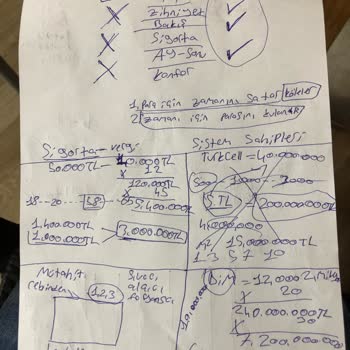 Zihniyet
Bakış
Sigorta
Ay-Son
Konfor
1, para için zamanını satar köleler
2, zamanı için parasını kullanır
Sigorta - vergi
50.000TL
10.000TL
x 12
120.000TL
x 45
18--20...
58
65
5.400.000TL
1.400.000TL
1.000.000TL
3.000.000TL
Sistem Sahipleri
Turkcell = 40.000.000
1000 - 3000
5 TL = 200.000.000TL
15.000.000TL
1 3 5 7 10
Matahit
1,2,3
Sıvacı
alçıcı
BİM = 12,000
x 20
240.000.000TL
x 30
7,200.000.000TL